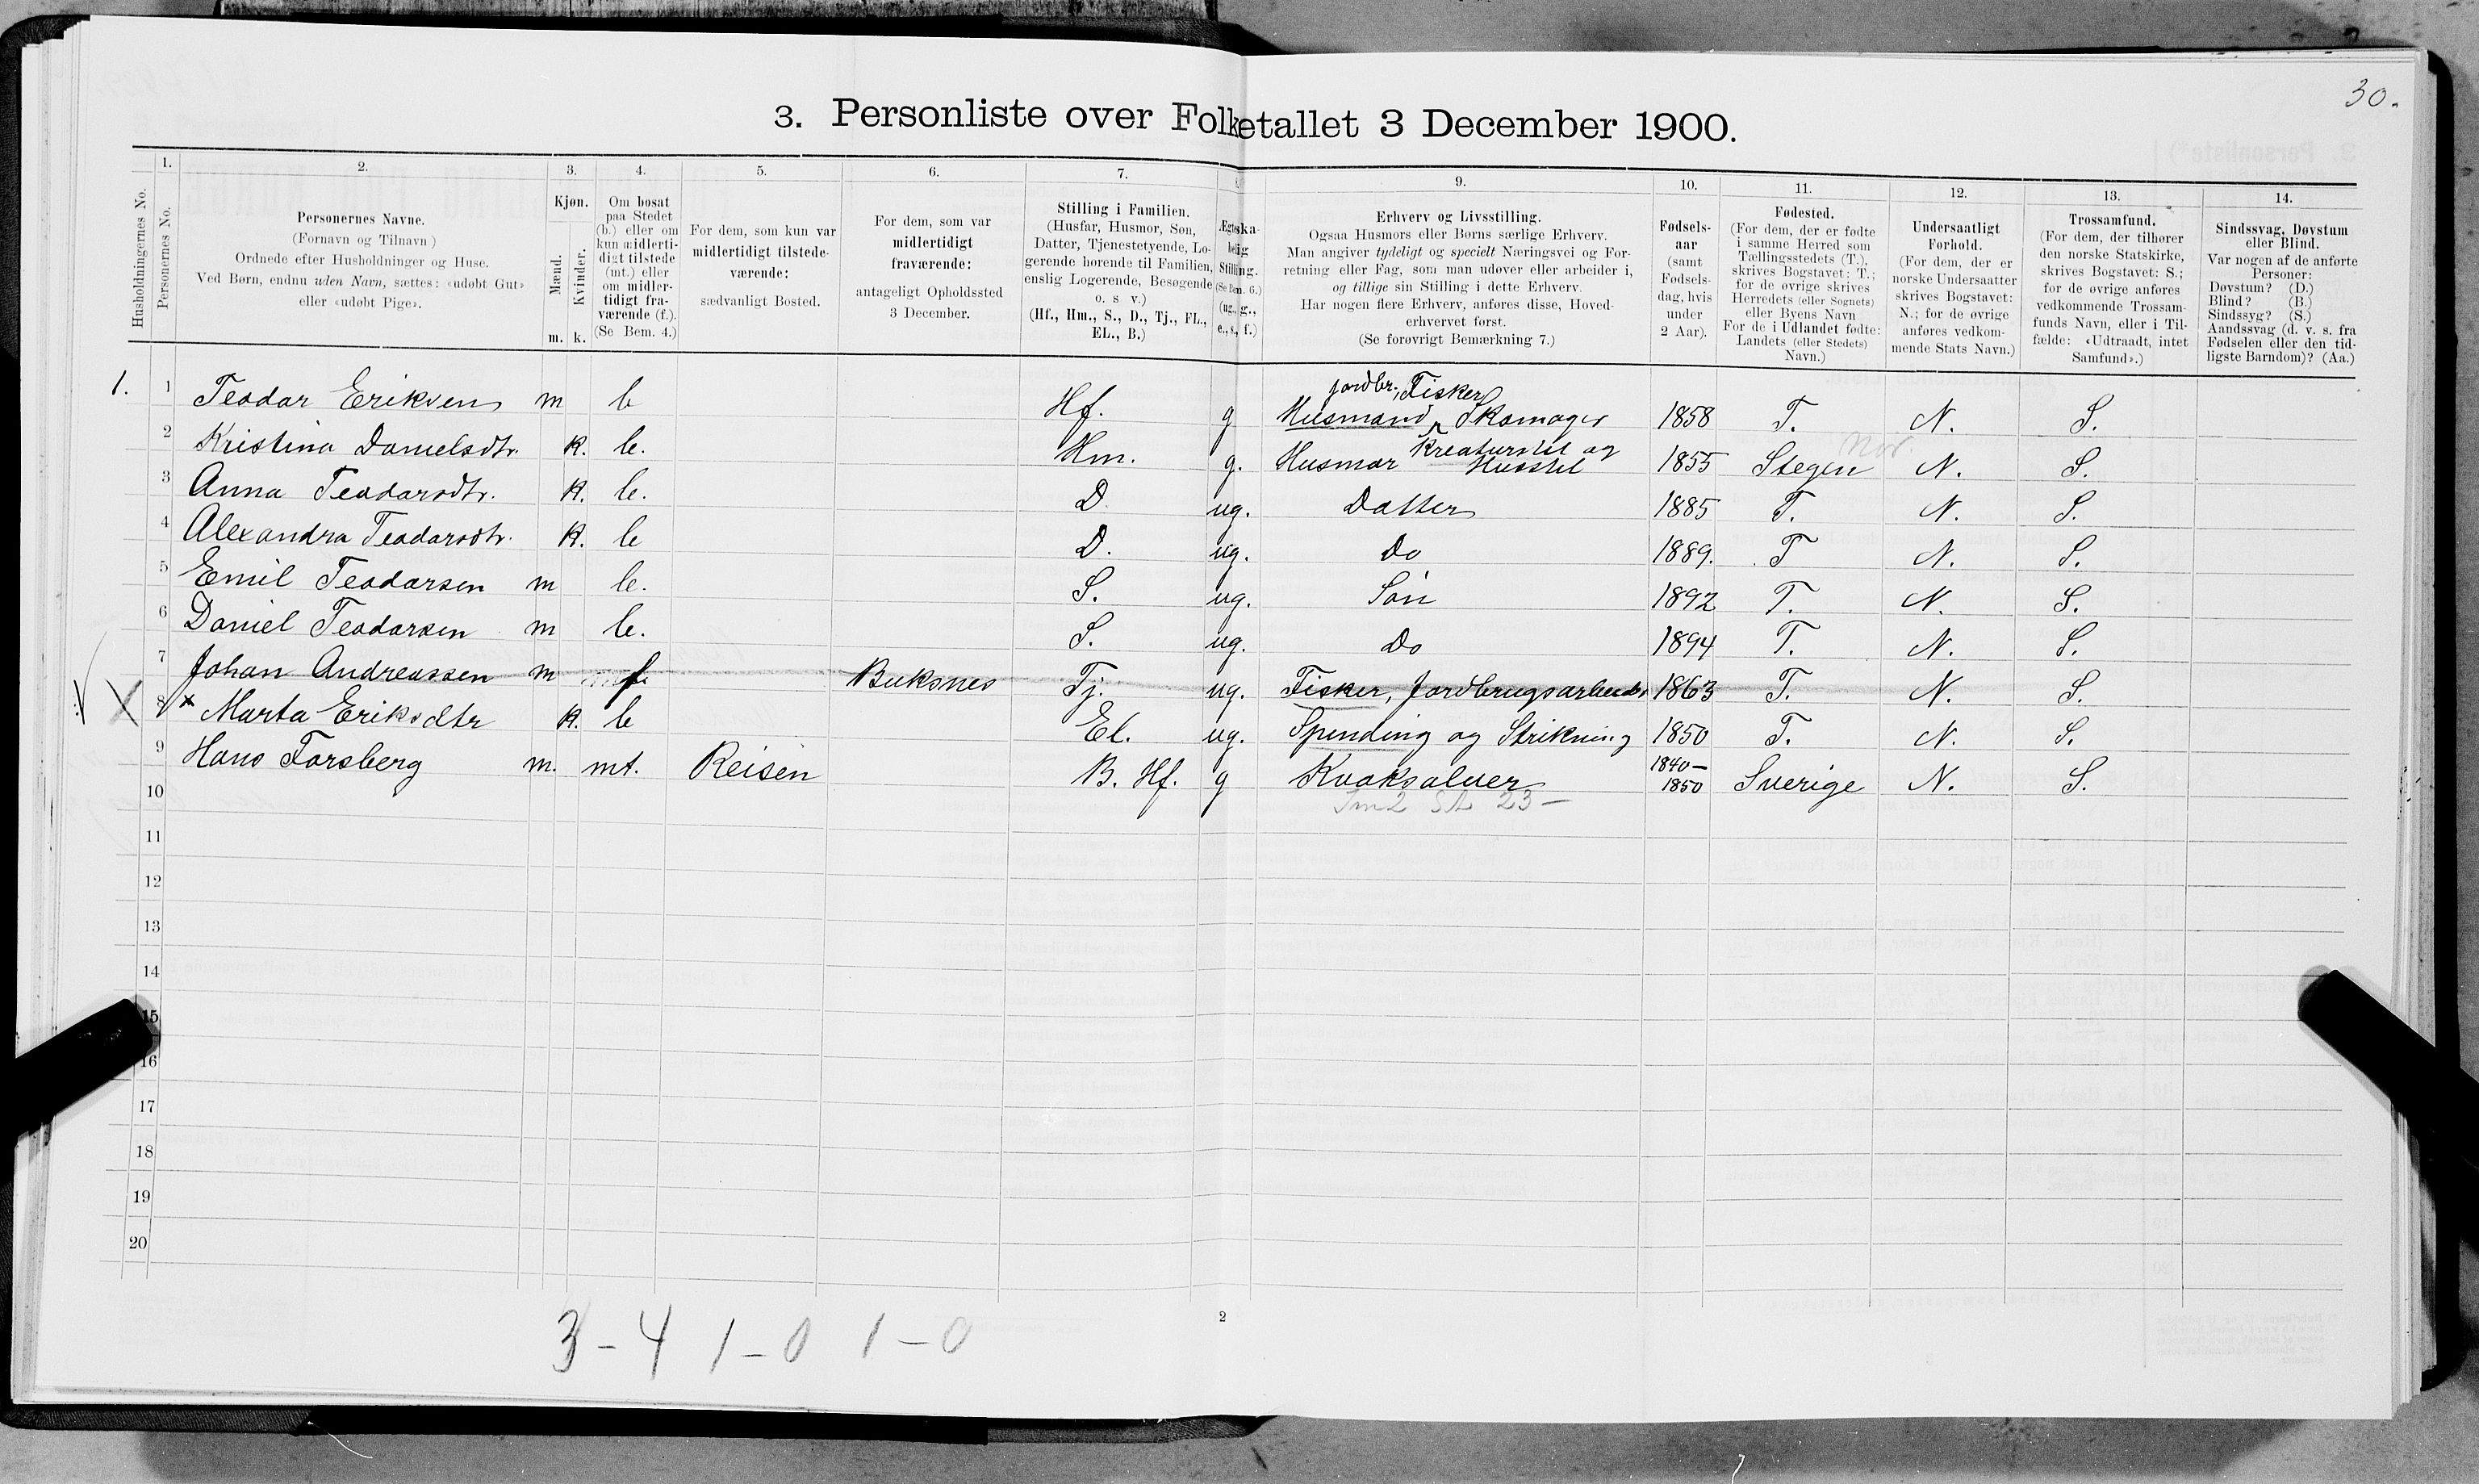 30.
3. Personliste over Folketallet 3 December 1900.
Husholdningernes No.
1.
Personernes No.
2.
Personernes Navne.
(Fornavn og Tilnavn)
Ordnede efter Husholdninger og Huse.
Ved Børn, endnu uden Navn, sættes: «udøbt Gut»
eller «udøbt Pige».
3.
Kjøn.
Mænd.
Kvinder.
m. k.
4.
Om bosat
paa Stedet
(b.) eller om
kun midlerti-
digt tilstede
(mt.) eller
om midler-
tidigt fra-
værende (f.).
(Se Bem. 4.)
5.
For dem, som kun var
midlertidigt tilstede-
værende:
sædvanligt Bosted.
6.
For dem, som var
midlertidigt
fraværende:
antageligt Opholdssted
3 December.
7.
Stilling i Familien.
(Husfar, Husmor, Søn,
Datter, Tjenestetyende, Lo-
gerende hørende til Familien,
enslig Logerende, Besøgende
o. s v.)
(Hf., Hm., S., D., Tj., FL.,
EL., B.)
Ægteska-
belig
Stilling.
(Se Bem. 6.)
(ug., g.,
e., s., f.)
9.
Erhverv og Livsstilling.
Ogsaa Husmors eller Børns særlige Erhverv.
Man angiver tydeligt og specielt Næringsvei og For-
retning eller Fag, som man udøver eller arbeider i,
og tillige sin Stilling i dette Erhverv.
Har nogen flere Erhverv, anføres disse, Hoved-
erhvervet først.
(Se forøvrigt Bemærkning 7.)
10.
Fødsels-
aar
(samt
Fødsels-
dag, hvis
under
2 Aar).
11.
Fødested.
(For dem, der er fødte
i samme Herred som
Tællingsstedets (T.),
skrives Bogstavet: T.;
for de øvrige skrives
Herredets (eller Sognets)
eller Byens Navn
For de i Udlandet fødte:
Landets (eller Stedets)
Navn.)
12.
Undersaatligt
Forhold.
(For dem, der er
norske Undersaatter
skrives Bogstavet:
N.; for de øvrige
anføres vedkom-
mende Stats Navn.)
13.
Trossamfund.
(For dem, der tilhører
den norske Statskirke,
skrives Bogstavet: S.;
for de øvrige anføres
vedkommende Trossam-
funds Navn, eller i Til-
fælde: «Udtraadt, intet
Samfund».)
14.
Sindssvag, Døvstum
eller Blind.
Var nogen af de anførte
Personer:
Døvstum? (D.)
Blind? (B.)
Sindssyg? (S.)
Aandssvag (d. v. s. fra
Fødselen eller den tid-
ligste Barndom)? (Aa.)
jordbr., Fisker
1. 1 Teodor Eriksen m b Hf. g Husmand, Skomager 1858 T. N. S.
Kreaturstel og
2 Kristina Danielsdtr. k. b. Hm. g. Husmor Husstel 1855 Stegen Nor. N. S.
3 Anna Teodorsdtr. k. b. D. ug. Datter 1885 T. N. S.
4 Alexandra Teodorsdtr. k. b D. ug. Do 1889. T N. S.
5 Emil Teodorsen m b. S. ug. Søn 1892 T. N. S.
6 Daniel Teodorsen m b. S. ug. Do 1894 T. N. S.
7 Johan Andreassen m f. Buksnes Tj. ug. Fisker, Jordbrugsarbeider 1863 T. N. S.
X 8 x Marta Eriksdtr k. b El. ug. Spinding og Strikning 1850 T. N. S.
9 Hans Forsberg m. mt. Reisen B. Hf. g Kvaksalver 1840–1850 Sverige N. S.
10
11
12
13
14
15
16
17
18
19
20
2
3 - 4 1 - 0 1 - 0